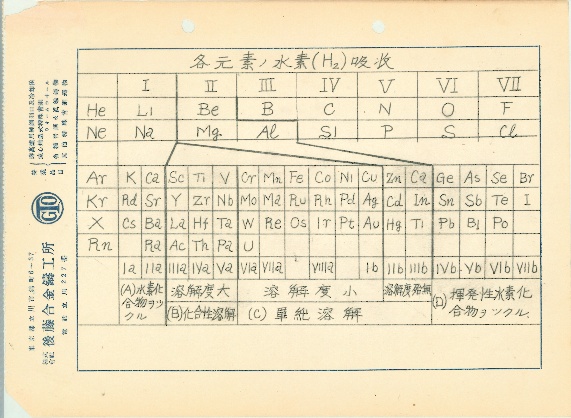 各元素ノ水素(H₂)吸收
I II III IV V VI VII
He Li Be B C N O F
Ne Na Mg Al Si P S Cl
Ar K Ca Sc Ti V Cr Mn Fe Co Ni Cu Zn Ca Ge As Se Br
Kr Rd Sr Y Zr Nb Mo Ma Ru Rh Pd Ag Cd In Sn Sb Te I
X Cs Ba La Hf Ta W Re Os Ir Pt Au Hg Ti Pb Bi Po
Rn Ra Ac Th Pa U
Ia IIa IIIa IVa Va VIa VIIa VIIIa Ib IIb IIIb IVb Vb VIb VIIb
(A)水素化合物ヲツクル
溶解度大
(B)化合性溶解
溶解度小
(C)單純溶解
(D)揮発性水素化合物ヲツクル.
後藤合金鑄工所